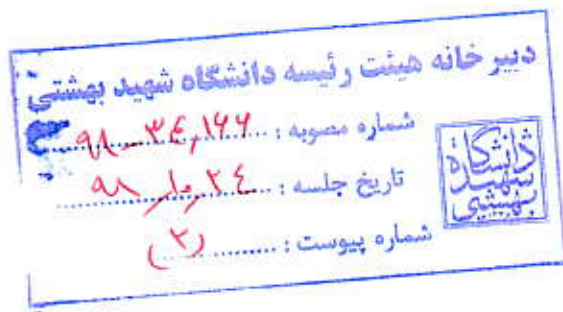 دبیر خانه هیئت رئیسه دانشگاه شهید بهشتی
شماره مصوبه : ۹۸-۳٤,۱۶۶
تاریخ جلسه : ۹۸,۱۰,۲٤
شماره پیوست : (۲)
دانشگاه
شهید
بهشتی